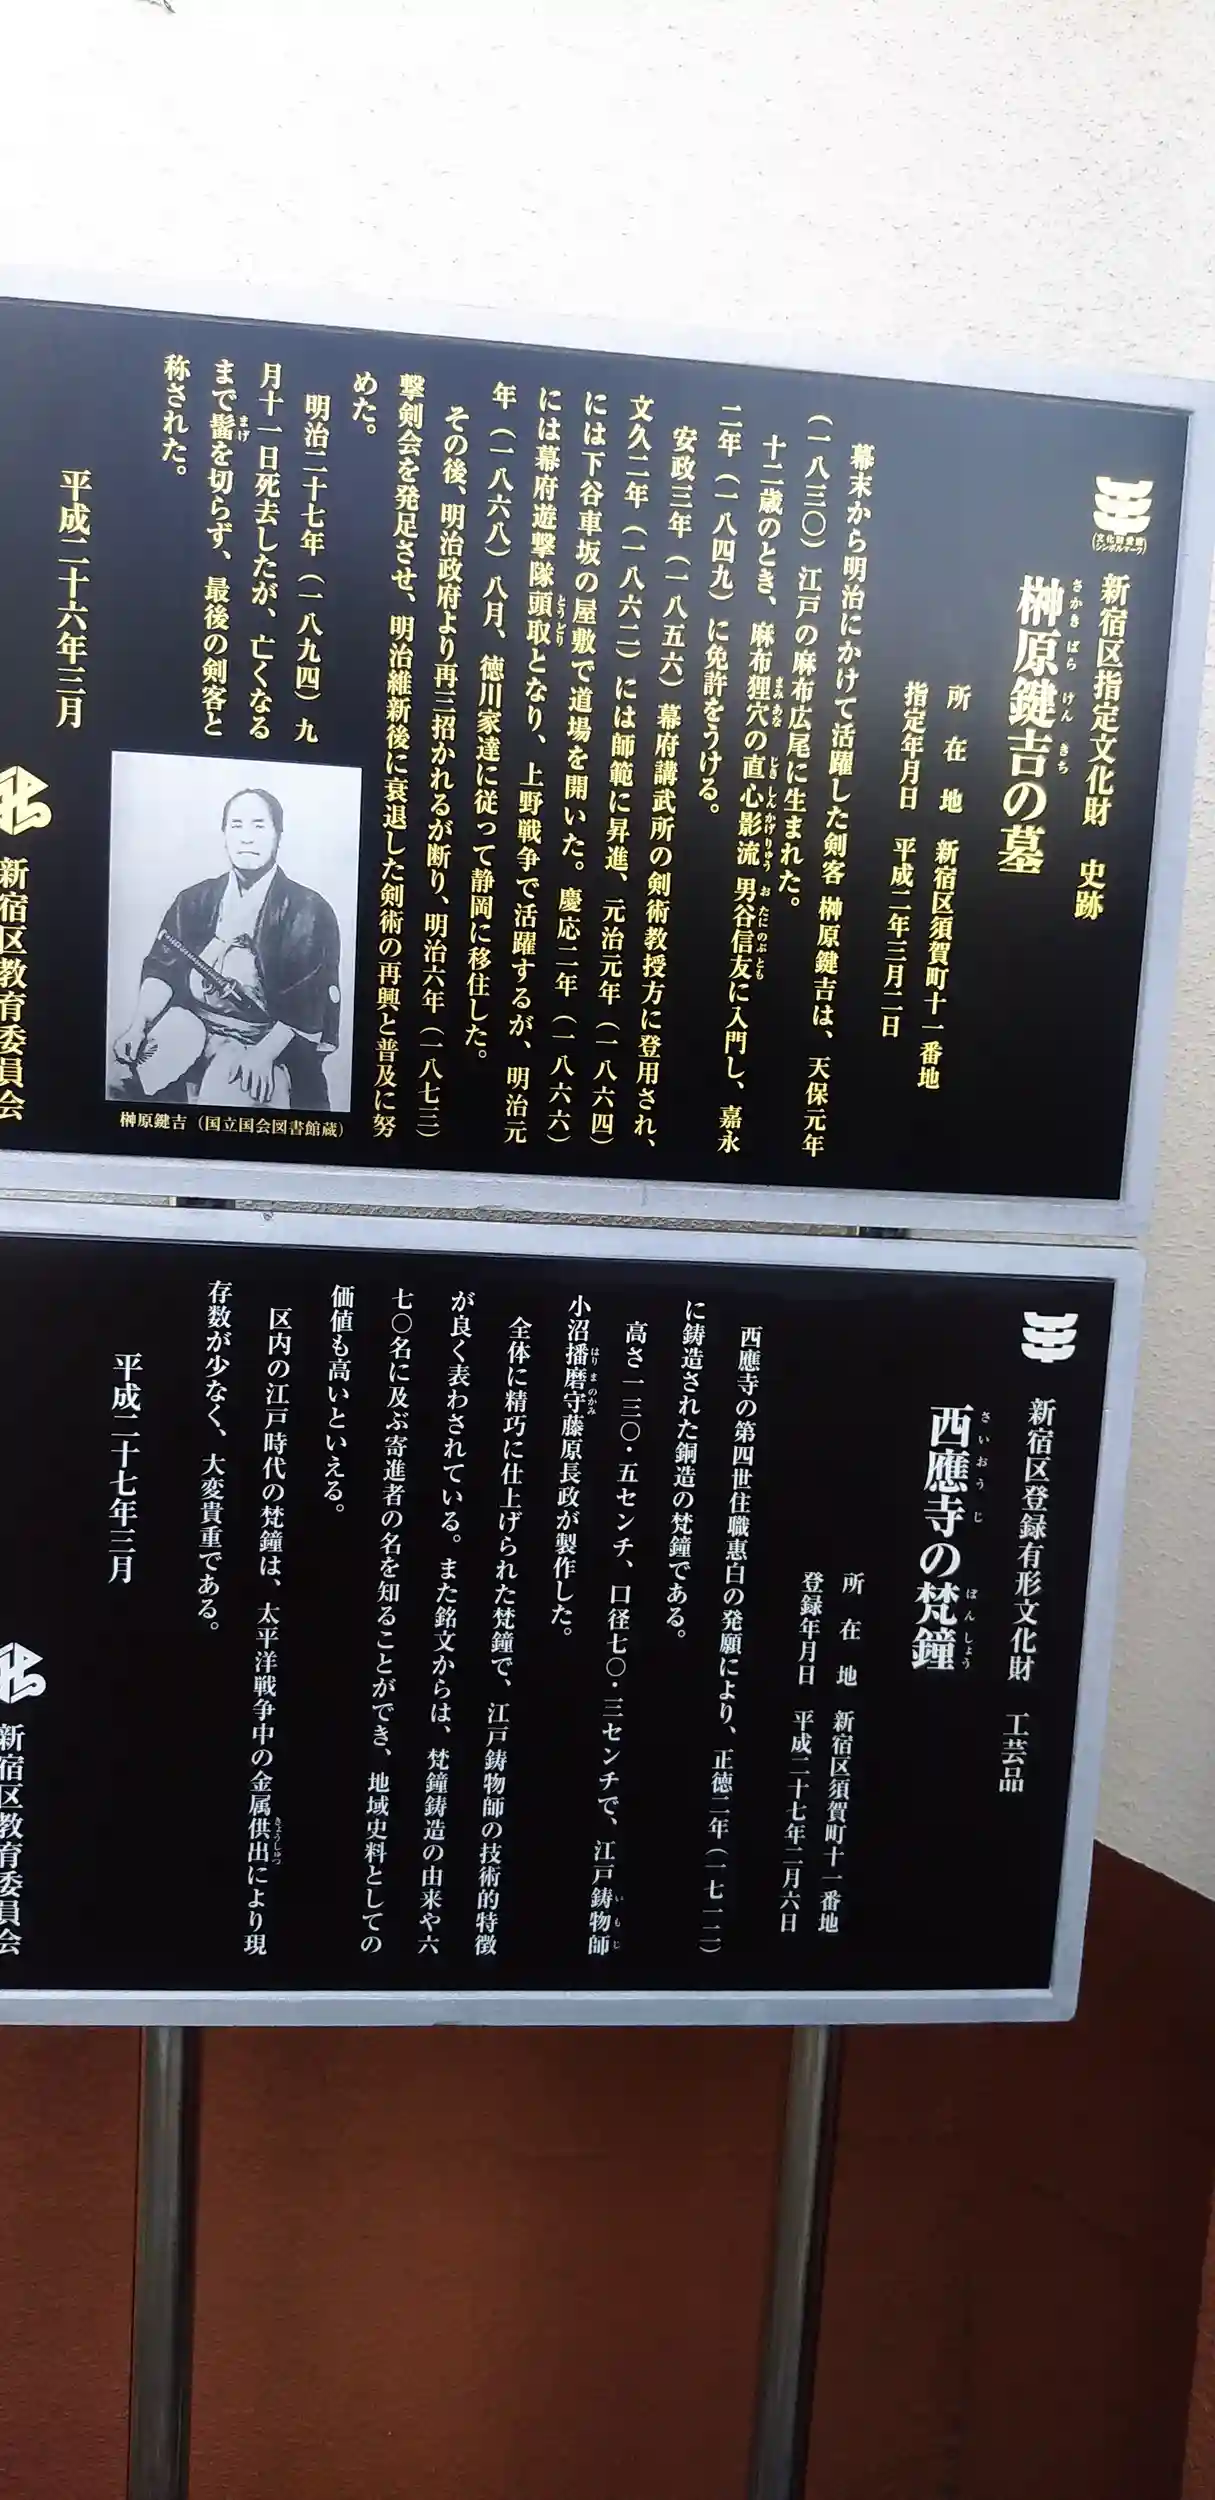 (文化財愛護
シンボルマーク)
新宿区指定文化財　史跡
榊原鍵吉の墓
さかきばらけんきち
所在地　新宿区須賀町十一番地
指定年月日　平成二年三月二日
幕末から明治にかけて活躍した剣客 榊原鍵吉は、天保元年
(一八三〇)江戸の麻布広尾に生まれた。
十二歳のとき、麻布狸穴の直心影流 男谷信友に入門し、嘉永
まみあな　じきしんかげりゅう　おたにのぶとも
二年(一八四九)に免許をうける。
安政三年(一八五六)幕府講武所の剣術教授方に登用され、
文久二年(一八六二)には師範に昇進、元治元年(一八六四)
には下谷車坂の屋敷で道場を開いた。慶応二年(一八六六)
には幕府遊撃隊頭取となり、上野戦争で活躍するが、明治元
とうどり
年(一八六八)八月、徳川家達に従って静岡に移住した。
その後、明治政府より再三招かれるが断り、明治六年(一八七三)
撃剣会を発足させ、明治維新後に衰退した剣術の再興と普及に努
めた。
明治二十七年(一八九四)九
月十一日死去したが、亡くなる
まで髷を切らず、最後の剣客と
まげ
称された。
榊原鍵吉(国立国会図書館蔵)
平成二十六年三月
新宿区教育委員会
新宿区登録有形文化財　工芸品
西應寺の梵鐘
さいおうじ　ぼんしょう
所在地　新宿区須賀町十一番地
登録年月日　平成二十七年二月六日
西應寺の第四世住職惠白の発願により、正徳二年(一七一二)
に鋳造された銅造の梵鐘である。
高さ一三〇・五センチ、口径七〇・三センチで、江戸鋳物師
いもじ
小沼播磨守藤原長政が製作した。
はりまのかみ
全体に精巧に仕上げられた梵鐘で、江戸鋳物師の技術的特徴
が良く表わされている。また銘文からは、梵鐘鋳造の由来や六
七〇名に及ぶ寄進者の名を知ることができ、地域史料としての
価値も高いといえる。
区内の江戸時代の梵鐘は、太平洋戦争中の金属供出により現
きょうしゅつ
存数が少なく、大変貴重である。
平成二十七年三月
新宿区教育委員会